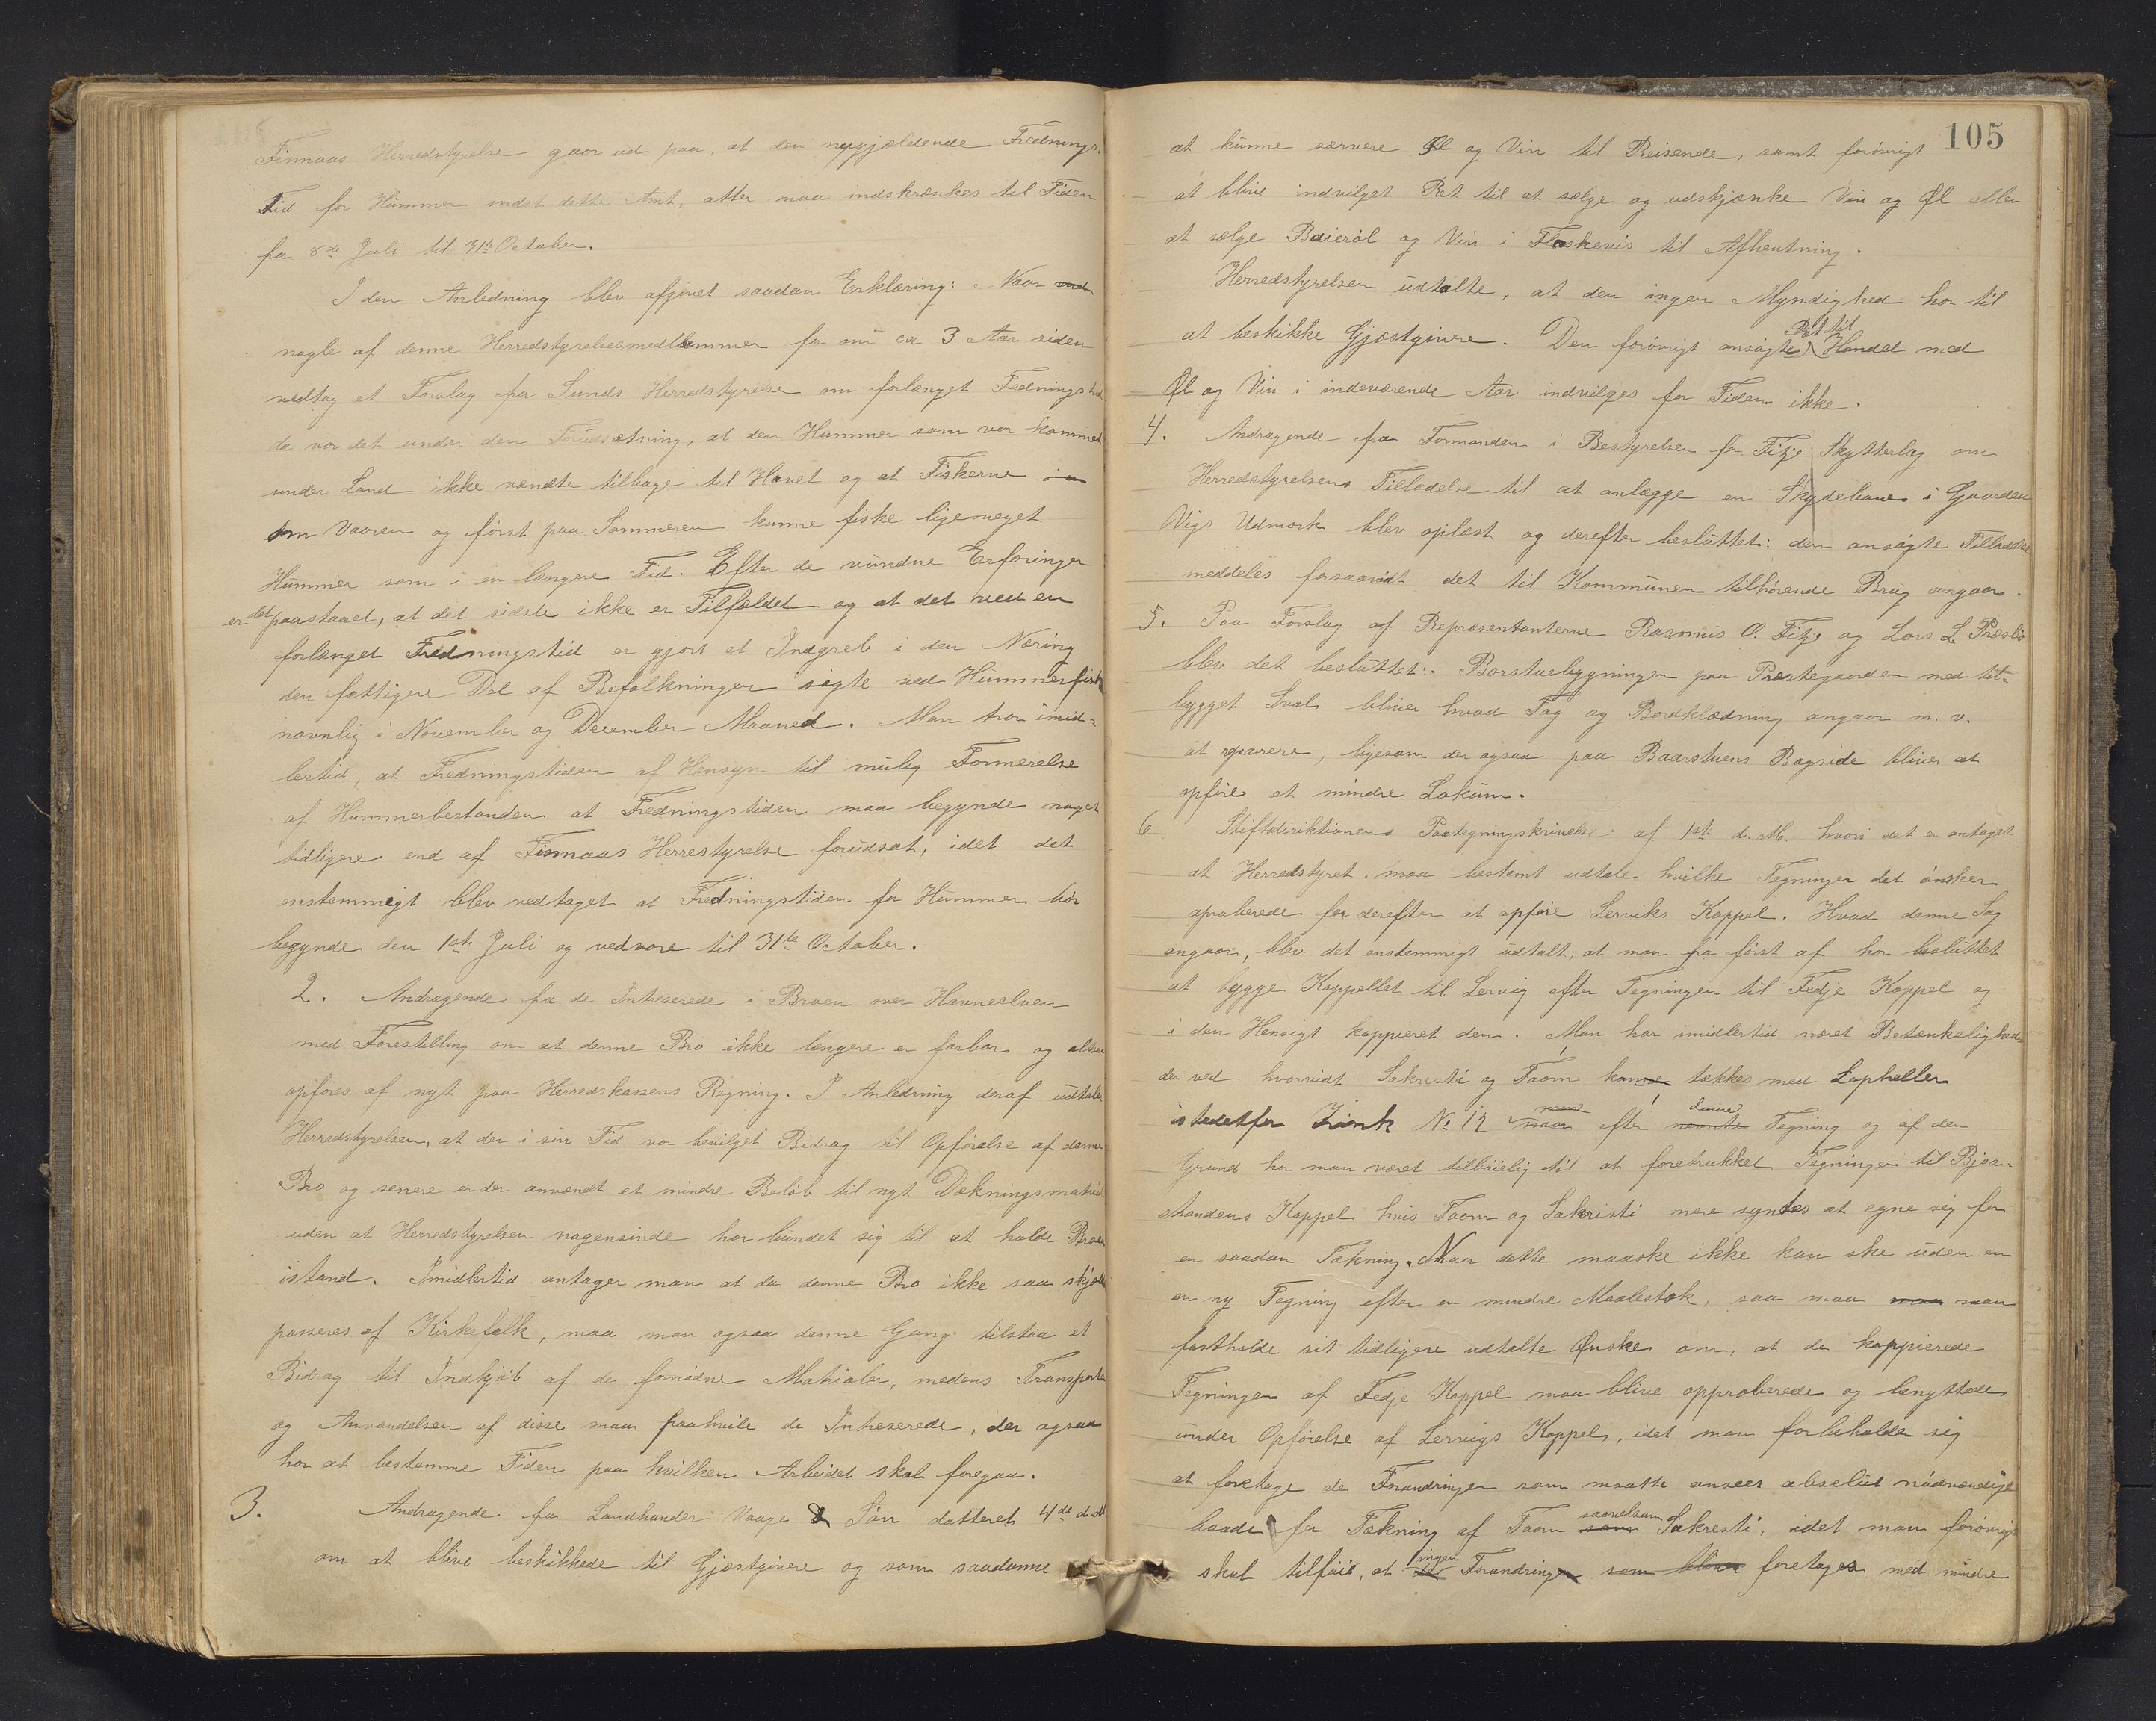 Finnaas Herredstyrelse gaar ud paa, at den nugjældende Frednings-
Tid for Hummer indet dette Amt, atter maa indskrænkes til Tiden
fra 8de Juli til 31te October.
I den Anledning blev afgivet saadan Erklæring: Naar
nogle af denne Herredstyrelsesmedlemmer for om ca 3 Aar siden
vedtog et Forslag fra Sunds Herredstyrelse om forlænget Fredningstid
da var det under den Forudsætning, at den Hummer som var kommet
under Land ikke vendte tilbage til Havet og at Fiskerne
om Vaaren og först paa Sommeren kunne fiske ligemeget
Hummer som i en længere Tid. Efter de vundne Erfaringer
er det paastaaet, at det sidste ikke er Tilfældet og at det ved en
forlænget Fredningstid er gjort et Indgreb i den Næring
den fattigere Del af Befolkningen sögte ved Hummerfiske
navnlig i November og December Maaned. Man tror imid-
lertid, at Fredningstiden af Hensyn til mulig Formerelse
af Hummerbestanden at Fredningstiden maa begynde noget
tidligere end af Finnaas Herrestyrelse forudsat, idet det
enstemmigt blev vedtaget at Fredningstiden for Hummer bör
begynde den 1ste Juli og vedvare til 31te October.
2. Andragende fra de Intreserede i Broen over Havneelven
med Forestilling om at denne Bro ikke længere er farbar og altsaa
opföres af nyt paa Herredskassens Regning. I Anledning deraf udtaler
Herredstyrelsen, at der i sin Tid var bevilget Bidrag til Opförelse af denne
Bro og senere er der anvendt et mindre Belöb til nyt Dækningsmatrial
uden at Herredstyrelsen nogensinde har bundet sig til at holde Broen
istand. Imidlertid antager man at da denne Bro ikke saa skjelden
passeres af Kirkefolk, maa man ogsaa denne Gang tilstaa et
Bidrag til Indkjöb af de fornödne Matrialer, medens Transporten
og Anvendelsen af disse maa paahvile de Intreserede, der ogsaa
har at bestemme Tiden paa hvilken Arbeidet skal foregaa.
3. Andragende fra Landhandler Vaage & Sön datteret 4de d.M
om at blive beskikkede til Gjæstgivere og som saadanne
105
at kunne servere Øl og Vin til Reisende, samt forövrigt
at blive indvilget Ret til at sælge og udskjænke Vin og Øl eller
at sælge Baieröl og Vin i Flaskevis til Afhentning.
Herredstyrelsen udtalte, at den ingen Myndighed har til
at beskikke Gjæstgivere. Den forövrigt ansögte Ret til Handel med
Øl og Vin i indeværende Aar indvilges for Tiden ikke.
4. Andragende fra Formanden i Bestyrelsen for Fitje Skytterlag om
Herredstyrelsens Tilladelse til at anlægge en Skydebane i Gaarden
Vigs Udmark blev oplæst og derefter besluttet: den ansögte Tilladelse
meddeles forsaavidt det til Kommunen tilhörende Brug angaar.
5. Paa Forslag af Repræsentanterne Rasmus O. Fitje og Lars L
blev det besluttet: Borstuebygningen paa Præstegaarden med til-
bygget Sval bliver hvad Tag og Bordklædning angaar m. v.
at reparere, ligesom der ogsaa paa Baarstuens Bagside bliver at
opföre et mindre Lokum.
6 Stiftdiriktionens Paategningskrivelse af 1ste d. M. hvori det er antaget
at Herredstyret maa bestemt udtale hvilke Tegninger det önsker
aproberede for derefter at opföre Lerviks Kappel. Hvad denne Sag
angaar, blev det enstemmigt udtalt, at man fra först af har besluttet
at bygge Kappellet til Lervig efter Tegningen til Fedje Kappel og
i den Hensigt kappieret den. Man har imidlertid næret Betænkelighed
der ved hvorvidt Sakresti og Taarn kan tækkes med Lapheller
istedetfor Zink No 12 efter denne Tegning og af den
Grund har man været tilböielig til at foretrukket Tegningen til Bjoa-
Kappel hvis Taarn og Sakristi mere syntes at egne sig for
en saadan Tækning. Naar dette maaske ikke kan ske uden en
en ny Tegning efter en mindre Maalestok, saa maa man
fastholde sit tidligere udtalte Ønske om, at de kappierede
Tegninger af Fedje Kappel maa blive approberede og benyttede
under Opförelse af Lervigs Kappel, idet man forbeholder sig
at foretage de Forandringer som maatte ansees absolut nödvendige
baade for Tækning af Taarn saavelsom Sakresti, idet man forövrigt
skal tilföie, at ingen Forandring foretages med mindre